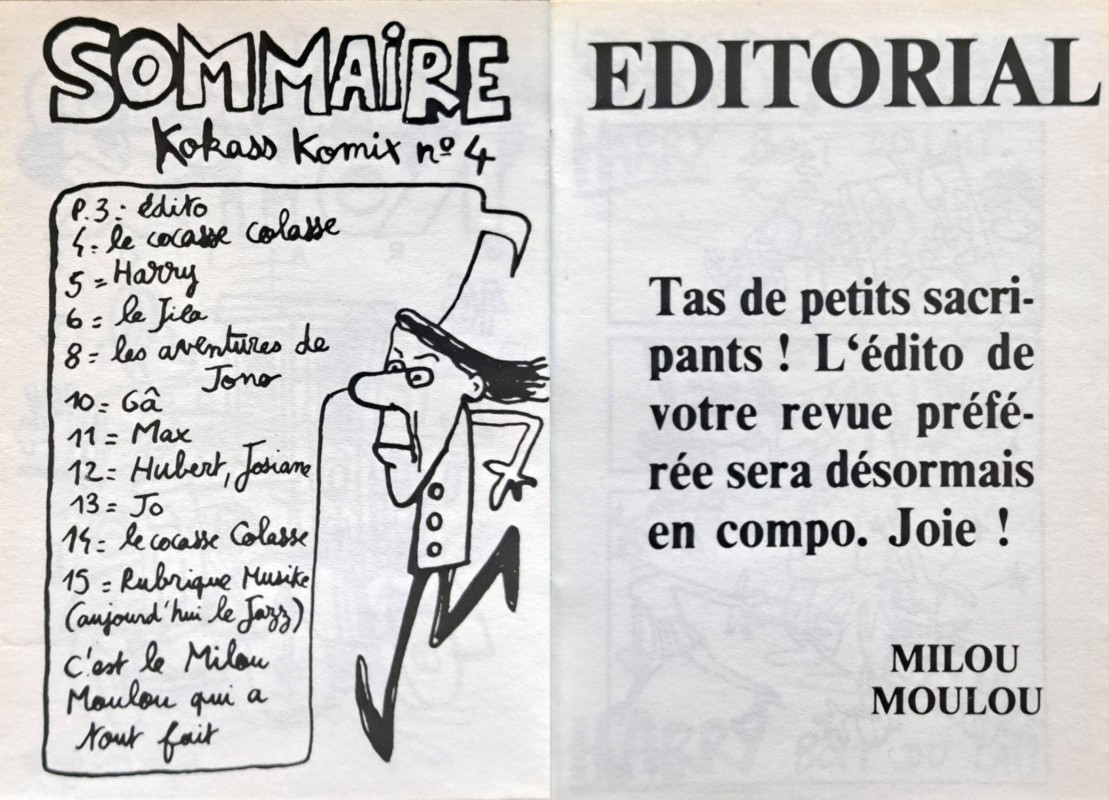 SOMMAiRE
Kokass Komix nº 4
P. 3 : édito
4 = le cocasse colasse
5 = Harry
6 = le Jila
8 = les aventures de
Jono
10 = Gâ
11 = Max
12 = Hubert, Josiane
13 = Jo
14 = le cocasse Colasse
15 = Rubrique Musike
(aujourd'hui le Jazz)
C'est le Milou
Moulou qui a
tout fait
EDITORIAL
Tas de petits sacri-
pants ! L‘édito de
votre revue préfé-
rée sera désormais
en compo. Joie !
MILOU
MOULOU